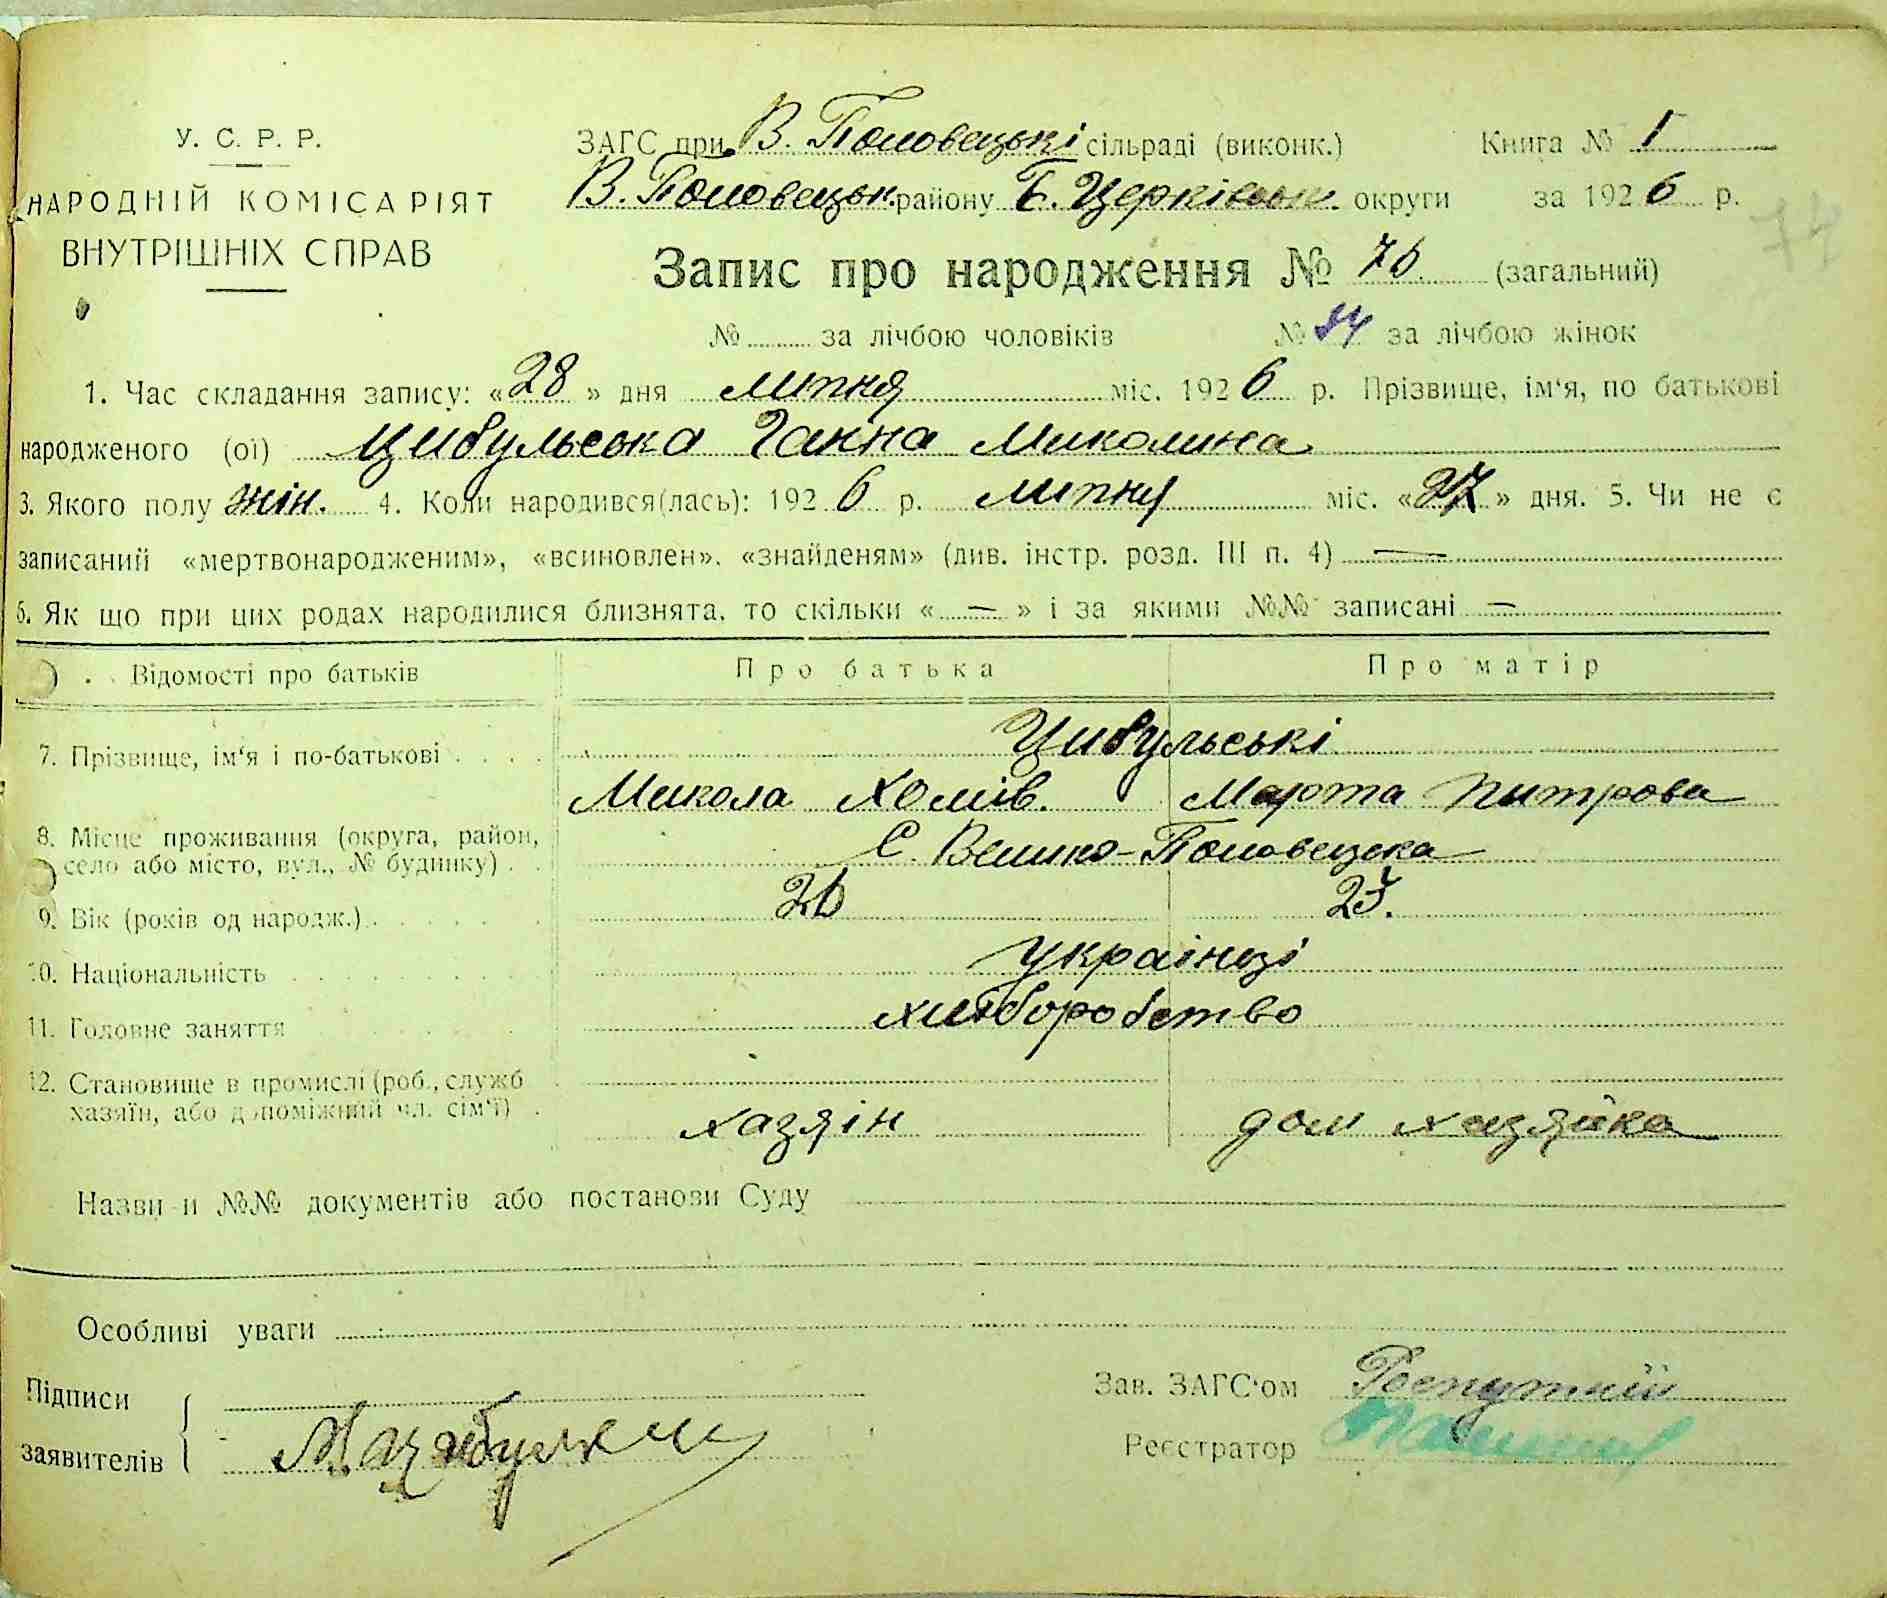 У. С. Р. Р.
НАРОДНІЙ КОМІСАРІЯТ
ВНУТРІШНІХ СПРАВ
ЗАГС при В. Половецькі сільраді (виконк.) Книга № 1
В. Половецьк. району Б. Церківськ. округи за 1926 р.
74
Запис про народження № 76 (загальний)
№ за лічбою чоловіків № за лічбою жінок
1. Час складання запису: «28» дня липня міс. 1926 р. Прізвище, ім‘я, по батькові
народженого (ої) Цибульська Ганна Миколина
3. Якого полу жін. 4. Коли народився(лась): 1926 р. липня міс. «27» дня. 5. Чи не є
записаний «мертвонародженим», «всиновлен», «знайденям» (див. інстр. розд. III п. 4) —
6. Як що при цих родах народилися близнята, то скільки « — » і за якими №№ записані —
Відомості про батьків Про батька Про матір
7. Прізвище, ім‘я і по-батькові Цибульські
Микола Хомів. Марта Питрова
8. Місце проживання (округа, район,
село або місто, вул., № будинку) С. Велико-Половецька
9. Вік (років од народж.) 26 27.
10. Національність українці
11. Головне заняття хліборобство
12. Становище в промислі (роб., служб
хазяїн, або допоміжний чл. сім‘ї) хазяін дом хазяйка
Назви и №№ документів або постанови Суду
Особливі уваги
Підписи
заявителів
Зав. ЗАГС‘ом Роспутній
Реєстратор